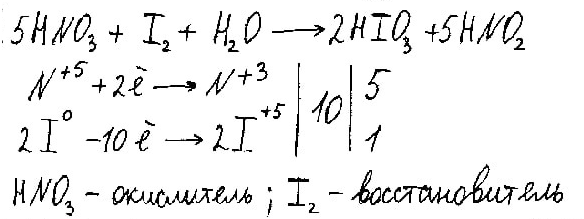 5HNO₃ + I₂ + H₂O ⟶ 2HIO₃ + 5HNO₂
N⁺⁵ + 2ē ⟶ N⁺³ | 10 | 5
2I⁰ - 10ē ⟶ 2I⁺⁵ | 1
HNO₃ - окислитель ; I₂ - восстановитель